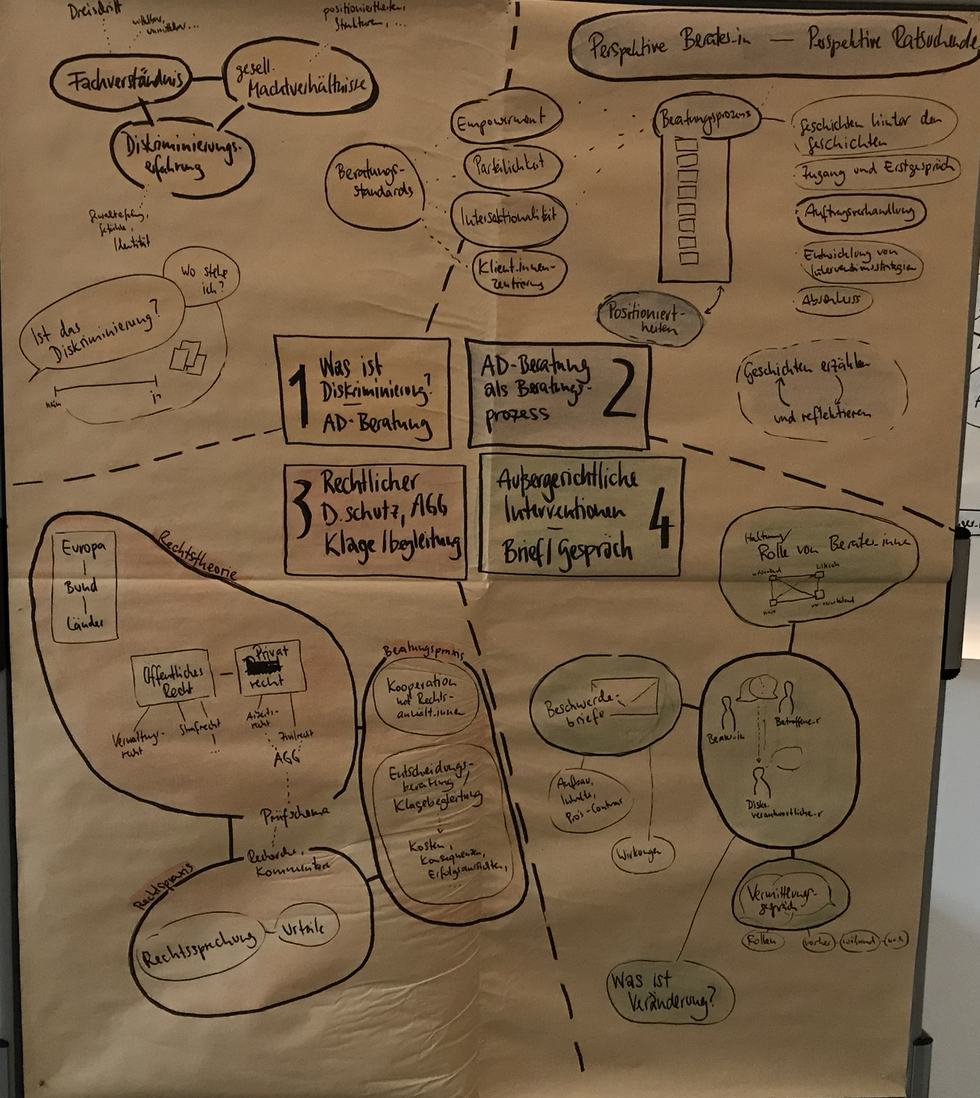 Dreischritt
positioniertheiten,
Strukturen, ...
Fachverständnis
gesell.
Machtverhältnisse
Diskriminierungs-
erfahrung
Identität
Wo stehe
ich?
Ist das
Diskriminierung?
nein
ja
Beratungs-
standards
Empowerment
Parteilichkeit
Intersektionalität
Klient.innen-
zentrierung
Perspektive Berater.in — Perspektive Ratsuchende
Beratungsprozess
Geschichten hinter den
Geschichten
Zugang und Erstgespräch
Auftragsverhandlung
Entwicklung von
Interventionsstrategien
Abschluss
Positioniert-
heiten
Geschichten erzählen
und reflektieren
1 Was ist
Diskriminierung?
AD-Beratung
AD-Beratung
als Beratungs-
prozess
2
3 Rechtlicher
D.schutz, AGG
Klage/begleitung
Außergerichtliche
Interventionen
Brief/Gespräch
4
Rechtstheorie
Europa
Bund
Länder
Öffentliches
Recht
Privat
recht
Verwaltungs-
recht
Strafrecht
...
Arbeits-
recht
Zivilrecht
AGG
Prüfschema
Recherche,
Kommentare
Rechtspraxis
Rechtssprechung
Urteile
Beratungspraxis
Kooperation
mit Rechts-
anwält.innen
Entscheidungs-
beratung/
Klagebegleitung
Kosten,
Konsequenzen,
Erfolgsaussichten,
...
Haltung/
Rolle von Berater.innen
Beschwerde-
briefe
Aufbau,
Inhalte,
Pros-Contras
Wirkungen
Berater.in
Betroffene.r
Diskr.
verantwortliche.r
Vermittlungs-
gespräch
Rollen
vorher
während
nach
Was ist
Veränderung?